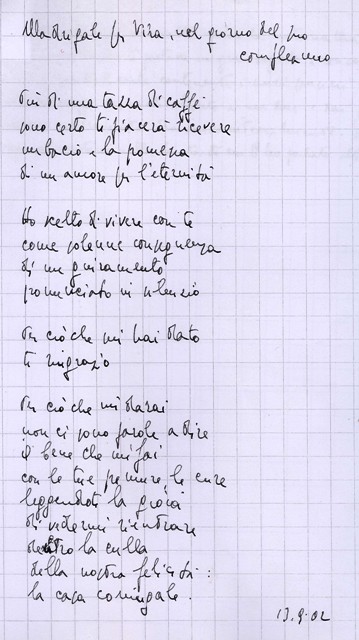 Madrigale per Vira, nel giorno del suo
compleanno
Più di una tazza di caffè
sono certo ti piacerà ricevere
un bacio e la promessa
di un amore per l'eternità
Ho scelto di vivere con te
come solenne conseguenza
di un giuramento
pronunciato in silenzio
Per ciò che mi hai dato
ti ringrazio
Per ciò che mi darai
non ci sono parole a dire
il bene che mi fai
con le tue premure, le cure
leggendoti la gioia
di vedermi rientrare
dentro la culla
della nostra felicità:
la casa coniugale.
13.9.02